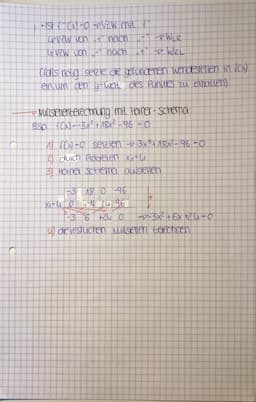 · Ist f''(x)=0 → VZW mit f''
VZW von + nach - → WLe
VZW von - nach + → WeL
(falls nötig setze die gefundenen Wendestellen in f(x)
ein um den y-Wert des Punktes zu erhalten)
→ Nullstellenberechnung mit Horner-Schema
Bsp. f(x)=-3x³+18x²-96=0
1) f(x)=0 setzen → -3x³+18x²-96=0
2) durch Probieren x₁=4
3) Horner Schema aufstellen
-3 18 0 -96
x₁=4 0 -12 24 96
-3 6 +24 0 → -3x²+6x+24=0
4) die restlichen Nullstellen berechnen